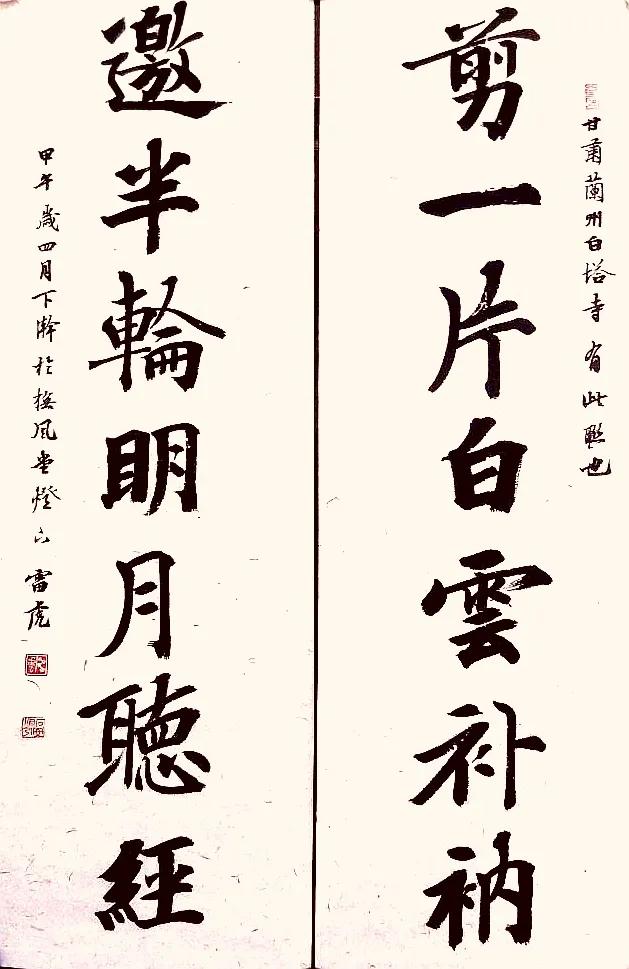 甘肅蘭州白塔寺有此聯也
剪一片白雲补衲
邀半輪明月聽經
甲午歲四月下澣於風堂燈下 雷虎